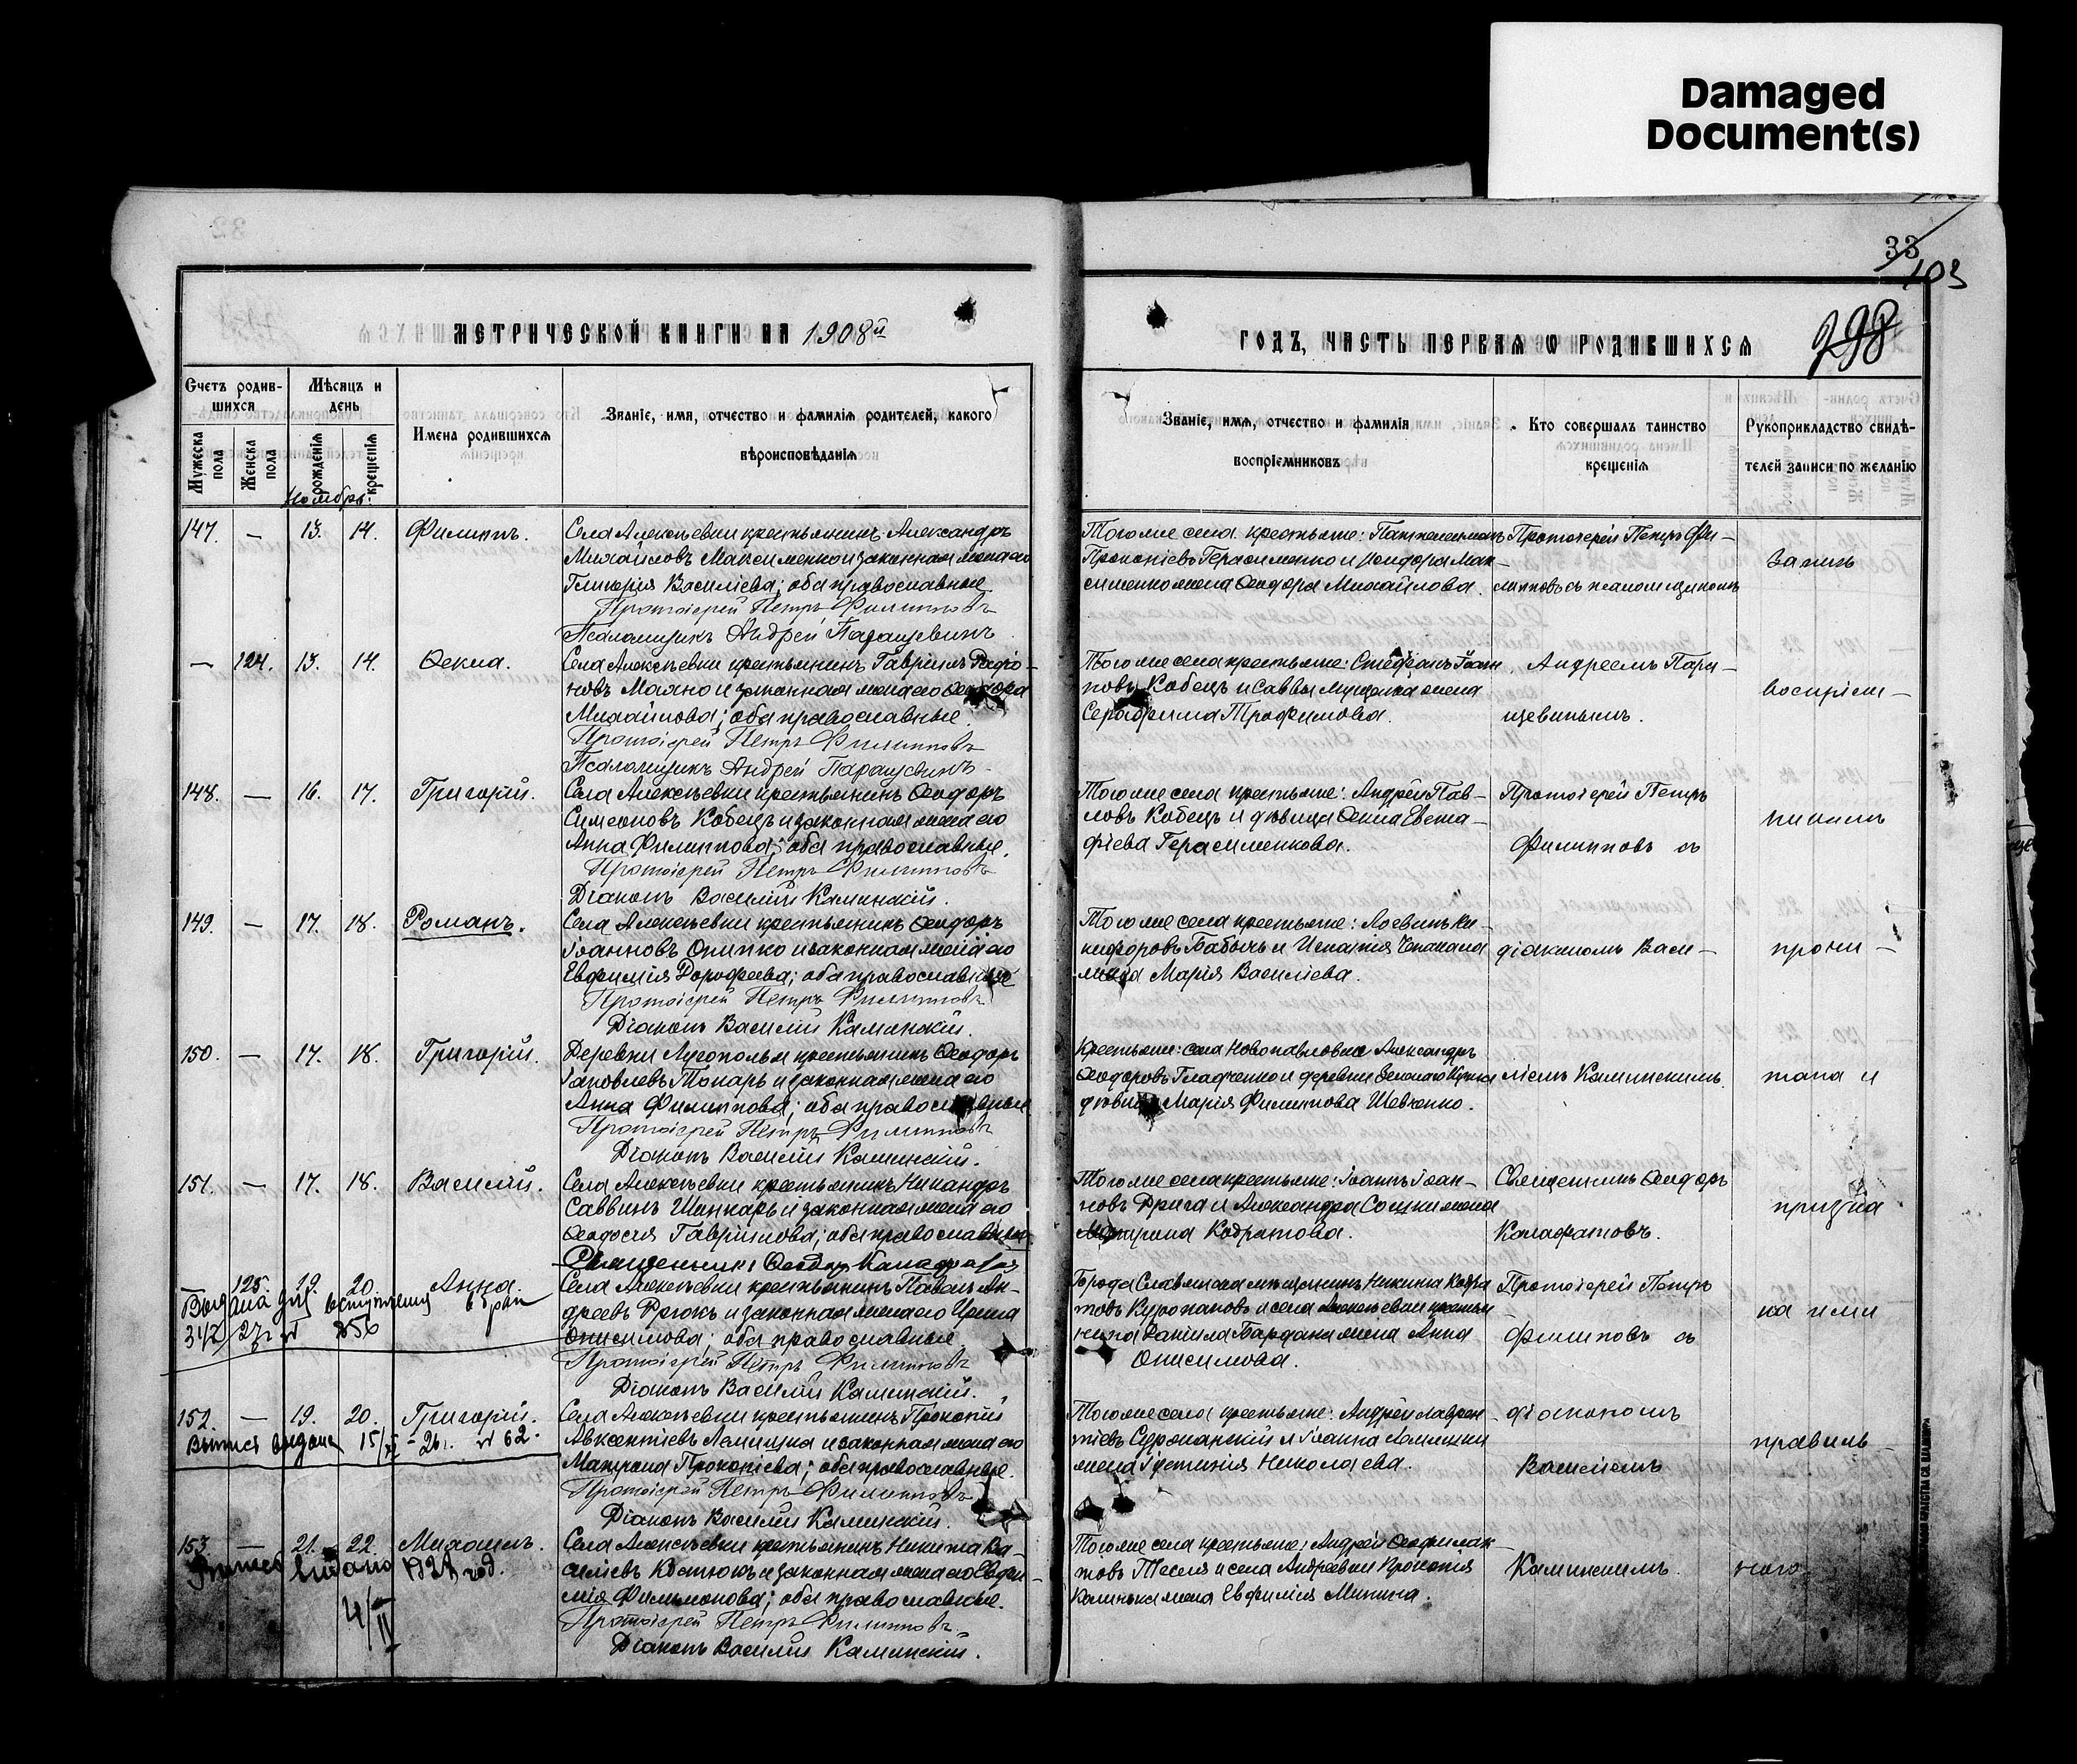 Damaged
Document(s)
33
103
298
МЕТРИЧЕСКОЙ КНИГИ НА 1908й
ГОДЪ, ЧАСТЬ ПЕРВАЯ Ѡ РОДИВШИХСЯ
Счетъ родив-
шихся
Мѣсяцъ и
день
Мужеска
пола
Женска
пола
рожденія
крещенія
Имена родившихся
Званіе, имя, отчество и фамилія родителей, какого
вѣроисповѣданія
Званіе, имя, отчество и фамилія
воспріемниковъ
Кто совершалъ таинство
крещенія
Рукоприкладство свидѣ-
телей записи по желанію
Ноябрь.
147. — 13. 14. Филиппъ.
Села Алексѣевки крестьянинъ Александръ
Михайловъ Максименко и законная жена его
Гликерія Василіева; оба православные.
Протоіерей Петръ Филипповъ
Псаломщикъ Андрей Паращевинъ
Того же села крестьяне: Пантелеимонъ
Прокопіевъ Герасименко и Исидора Мак-
сименко жена Ѳеодора Михайлова.
Протоіерей Петръ Фи-
липповъ съ псаломщикомъ
Запись
— 124. 13. 14. Ѳекла.
Села Алексѣевки крестьянинъ Гавріилъ Родіо-
новъ Махно и законная жена его Ѳеодора
Михайлова; оба православные.
Протоіерей Петръ Филипповъ
Псаломщикъ Андрей Паращевинъ.
Того же села крестьяне: Стефанъ Іоан-
новъ Кобецъ и Саввы Мищенка жена
Серафима Трофимова.
Андреемъ Пара-
щевинымъ.
воспріем-
148. — 16. 17. Григорій.
Села Алексѣевки крестьянинъ Ѳеодоръ
Симеоновъ Кобецъ и законная жена его
Анна Филиппова; оба православные.
Протоіерей Петръ Филипповъ
Діаконъ Василій Каминскій.
Того же села крестьяне: Андрей Пав-
ловъ Кобецъ и дѣвица Анна Евста-
фіева Герасименкова.
Протоіерей Петръ
Филипповъ съ
никомъ
149. — 17. 18. Романъ.
Села Алексѣевки крестьянинъ Ѳеодоръ
Іоанновъ Онипко и законная жена его
Евфимія Дорофеева; оба православные
Протоіерей Петръ Филипповъ
Діаконъ Василій Каминскій.
Того же села крестьяне: Логвинъ Ни-
кифоровъ Бабычъ и Игнатія Чепанала
жена Марія Василіева.
діакономъ Васи-
прочи-
150. — 17. 18. Григорій.
Деревни Лугополья крестьянинъ Ѳеодоръ
Іаковлевъ Токарь и законная жена его
Анна Филиппова; оба православные
Протоіерей Петръ Филипповъ
Діаконъ Василій Каминскій.
Крестьяне: села Новопавловки Александръ
Ѳеодоровъ Гладченко и деревни
дѣвица Марія Филиппова Шевченко.
ліемъ Каминскимъ.
тана и
151. — 17. 18. Василій.
Села Алексѣевки крестьянинъ Никандръ
Саввинъ Шинкарь и законная жена его
Ѳеодосія Гавріилова; оба православные.
Священникъ Ѳеодоръ Калафатовъ
Того же села крестьяне: Іоаннъ Іоан-
новъ Дрига и Александра Сошки жена
Матрона Кодратова.
Священникъ Ѳеодоръ
Калафатовъ.
призна
125. 19. 20. Анна.
Выдана для вступления в брак
856
Села Алексѣевки крестьянинъ Павелъ Ан-
дреевъ Фрюкъ и законная жена его Ирина
Онисимова; оба православные
Протоіерей Петръ Филипповъ
Діаконъ Василій Каминскій.
Города Славянска мѣщанинъ Никита Кодра-
товъ Куропатовъ и села Алексѣевки крестья-
нина Даніила Бардака жена Анна
Онисимова.
Протоіерей Петръ
Филиповъ съ
на ими
152. — 19. 20. Григорій.
Выпись выдана 15/XI - 26г. № 62.
Села Алексѣевки крестьянинъ Прокопій
Авксентіевъ Лемишка и законная жена его
Матрона Прокопіева; оба православные.
Протоіерей Петръ Филипповъ
Діаконъ Василій Каминскій.
Того же села крестьяне: Андрей Лаврен-
тіевъ Суржанскій и Іоанна Лемишки
жена Іустинія Николаева.
діакономъ
Василіемъ
правиль-
153. — 21. 22. Михаилъ.
видано год.
4/II
Села Алексѣевки крестьянинъ Никита Ва-
силіевъ Костюкъ и законная жена его Евфи-
мія Филимонова; оба православные.
Протоіерей Петръ Филипповъ
Діаконъ Василій Каминскій.
Того же села крестьяне: Андрей Ѳеофилак-
товъ Тесля и села Андреевки Прокопія
Калинька жена Евфимія Минина.
Каминскимъ.
ною